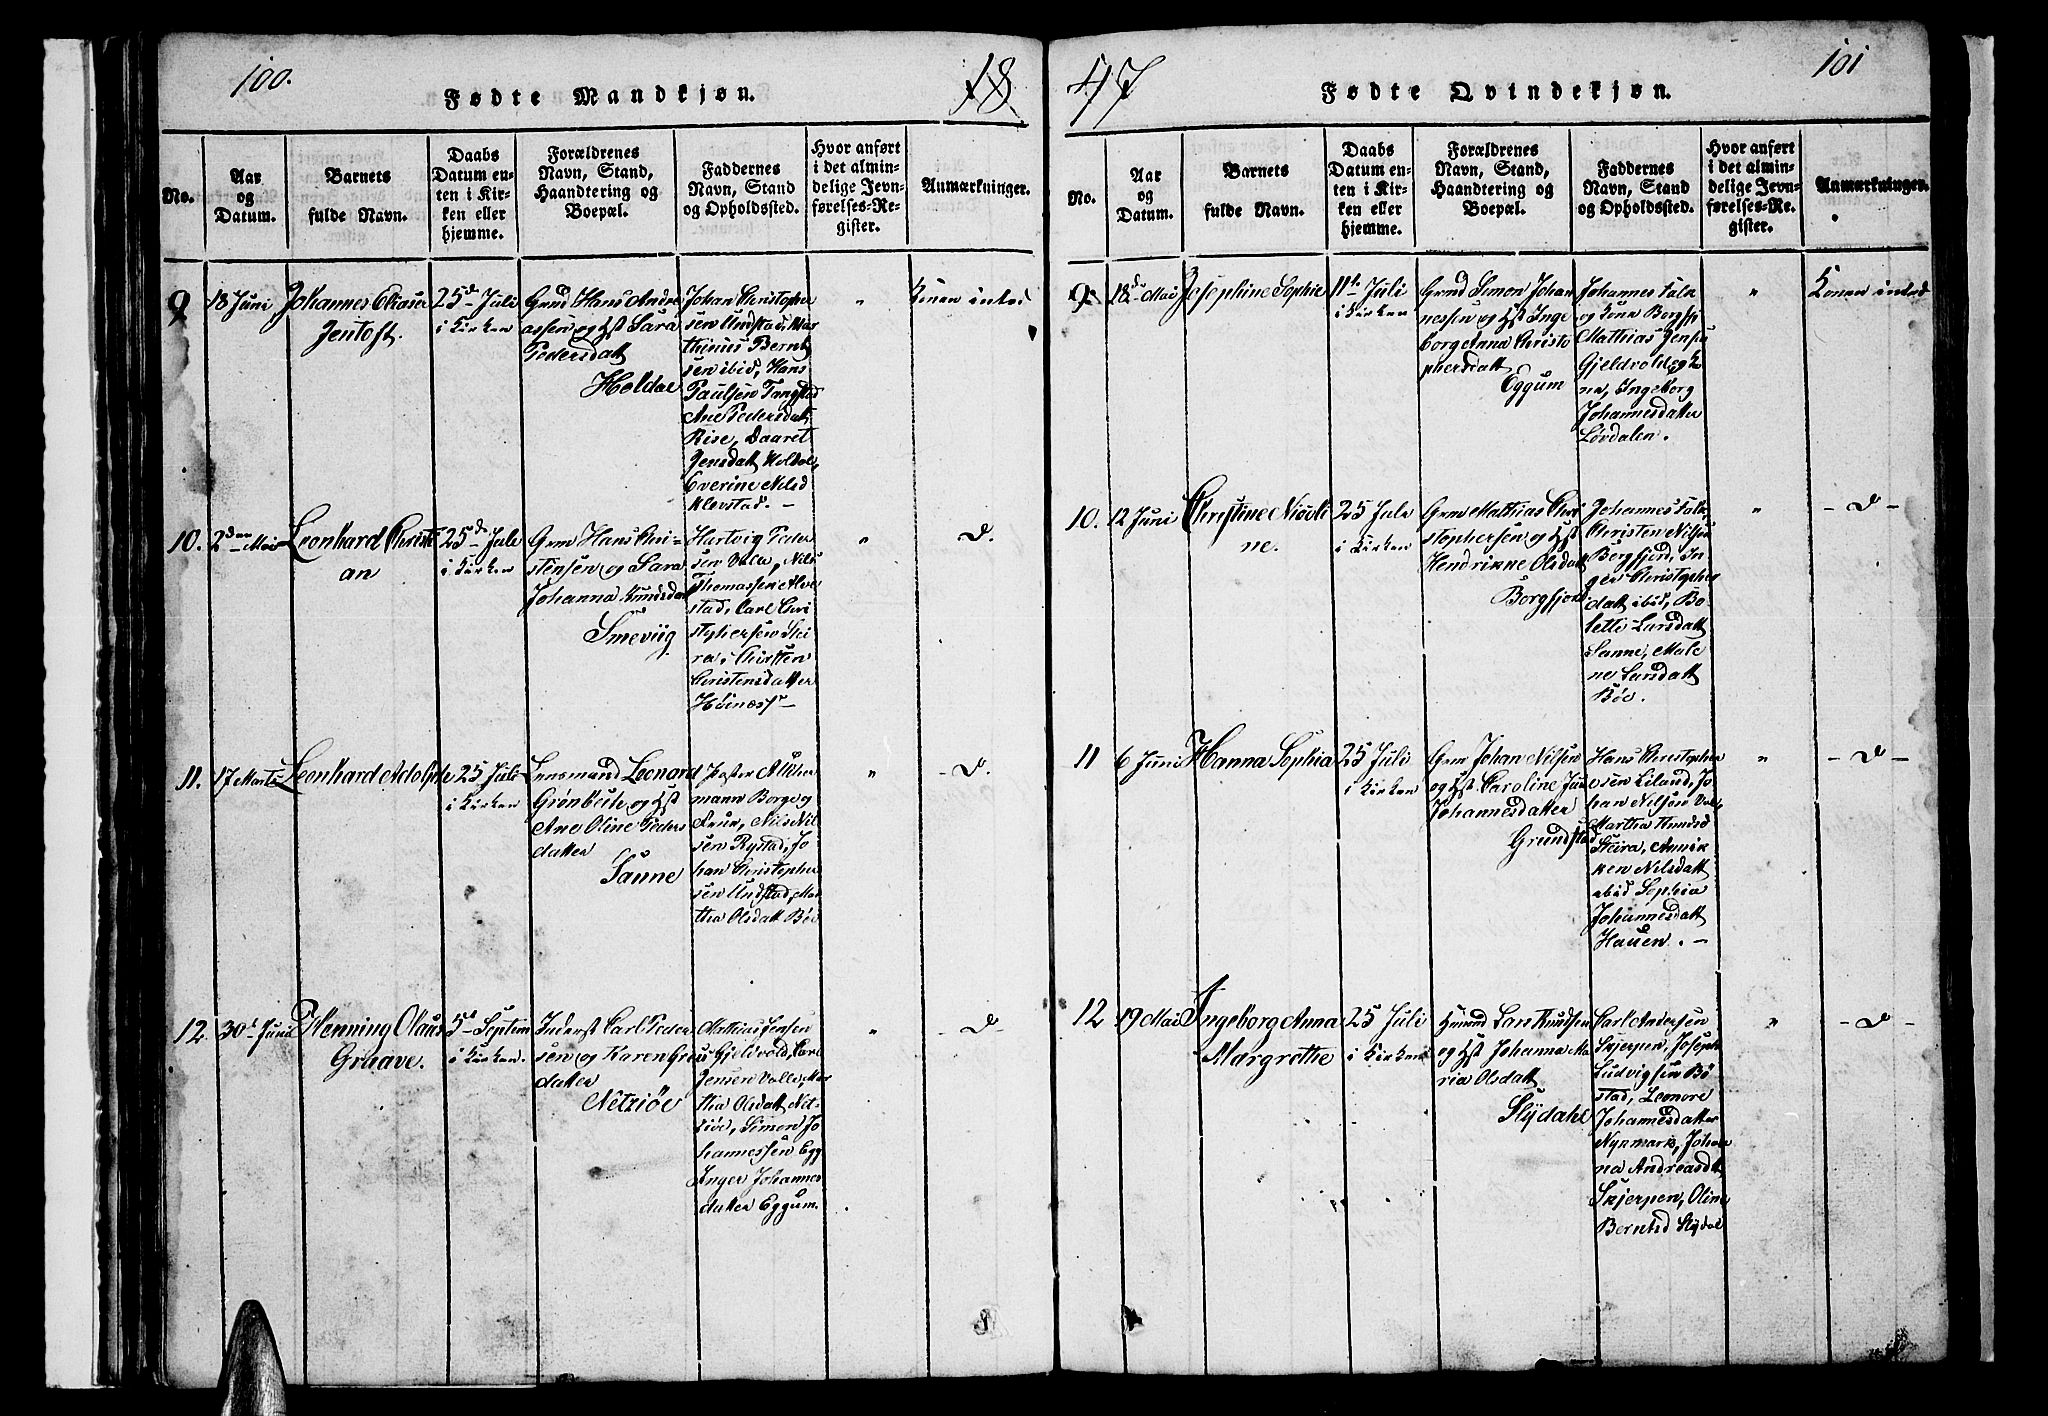 100.
Fødte Mandkjøn.
18
No.
Aar
og
Datum.
Barnets
fulde Navn.
Daabs
Datum en-
ten i Kir-
ken eller
hjemme.
Forældrenes
Navn, Stand,
Haandtering og
Boepæl.
Faddernes
Navn, Stand
og Opholdssted.
Hvor anført
i det almin-
delige Jevn-
førelses-Re-
gister.
Anmærkninger.
9
18 Juni
Johannes
Jentoft.
25d Juli
i Kirken
Hans Andre
assen og Hst Sara
Pedersdatt
Holdae
Johan Christopher
sen Undstad, Mar
thinus Bernt
sen ibid, Hans
Paulsen Tangstad
Ane Pedersdatt
Rise, Daaret
Jensdatt Holdal,
Everine Nilsd
Klevstad. -
"
Konen intod
10.
2den Mai
Leonhard Christi
an
25de Juli
i Kirken
Grm Hans Chri-
stensen og Sara
Johanna Knudsdat
Smeviig
Hartvig Peder
sen Valle, Nils
Thomassen Alve
stad, Carl Chri
stophersen Stei
ra, Chirsten
Christensdatter
Høinæss -
"
D.
11.
17 Marts
Leonhard Adolph
25 Juli
i Kirken
Lensmand Leonard
Grønbeck og Hst
Ane Oline Peders
datter
Sanne
Paster
mann Borge og
Frue, Nils Nil
sen Rystad, Jo
han Christopher
sen Undstad, Mar
tha Olsdatt Bøe
"
- D.
12.
30d Juni
Henning Olaus
Graave.
5d Septem
i Kirken.
Inderst Carl Peder
sen og Karen Greus
datter
Netziøe
Mathias Jensen
Gjeldvold, Karl
Jensen Valle, Mar
tha Olsdatt Net-
ziøe, Simon Jo
hannessen Egg
Inger Johannes
datter Eggum.
"
- D -
47
Fødte Qvindekjøn.
101
No.
Aar
og
Datum.
Barnets
fulde Navn.
Daabs
Datum en-
ten i Kir-
ken eller
hjemme.
Forældrenes
Navn, Stand,
Haandtering og
Boepæl.
Faddernes
Navn, Stand
og Opholdssted.
Hvor anført
i det almin-
delige Jevn-
førelses-Re-
gister.
Anmærkninger.
9.
18d Mai
Josephine Sophie
11te Juli
i Kirken
Grmd Simon Johan
nessen og Hst Inge
borg Anna Christo
phersdatt
Eggum
Johannes Falk
og Kone Borgfj
Mathias Jensen
Gjeldvold og Ko
ne, Ingeborg
Johannesdatter
Løvdalen.
"
Konen intod
10.
12 Juni
Christine Nicoli
ne.
25 Juli
i Kirken
Grm Mathias Chri
stophersen og Hst
Hendrikke Olsdatt
Borgfjord
Johannes Falk
Christen Nilsen
Borgfjord, In
ger Christopher
datt ibid, Bo-
lette Larsdatt
Sanne, Male
ne Larsdatt
Bøe.
"
- D -
11
6 Juni
Hanna Sophia
25 Juli
i Kirken
Grm Johan Nilsen
og Hst Caroline
Johannesdatter
Grundstad
Hans Christopher
sen Liland, Jo
han Nilsen Valle,
Martha Knudsd
Steira, Annik
ken Nilsdatt
ibid Sophia
Johannesdatt
Hauen. -
"
- D -
12
19 Mai
Ingeborg Anna
Margrethe
25 Juli
i Kirken
Huusmd Lars Knudsen
og Hst Johanna Ma
ria Olsdatt
Slydahl
Karl Andersen
Skjerpen, Joseph
Ludvigsen Bø
stad, Leonore
Johannesdatter
Nykmark, Johan
na Andreasdt
Skjerpen, Oline
Berntsd Slydal
"
- D -